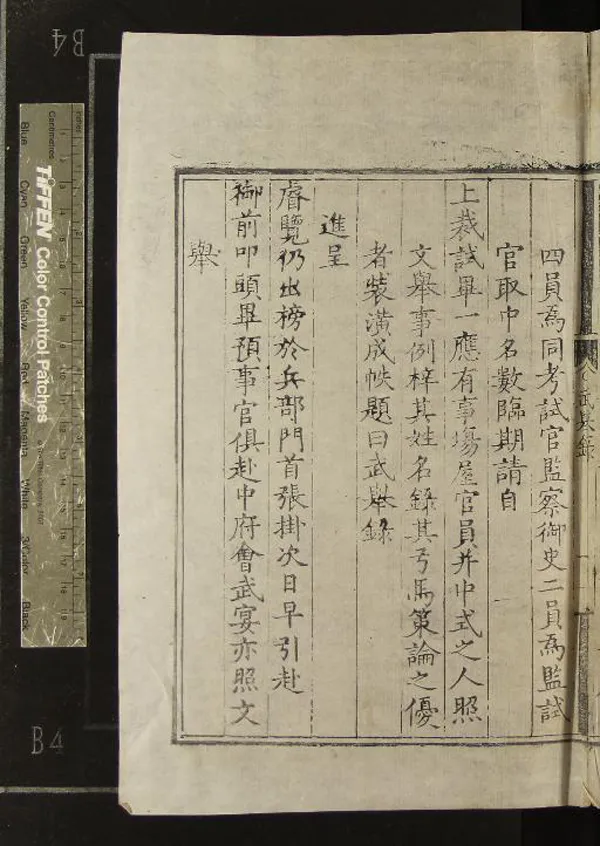 四員爲同考試官監察御史二員爲監試
官取中名數臨期請自
上裁試畢一應有事場屋官員并中式之人照
文舉事例梓其姓名錄其弓馬策論之優
者裝潢成帙題曰武舉錄
進呈
睿覽仍出榜於兵部門首張掛次日早引赴
御前叩頭畢預事官俱赴中府會武宴亦照文
舉
B4
B4
TIFFEN Color Control Patches
Centimetres
Inches
Blue
Cyan
Green
Yellow
Red
Magenta
White
3/Color
Black